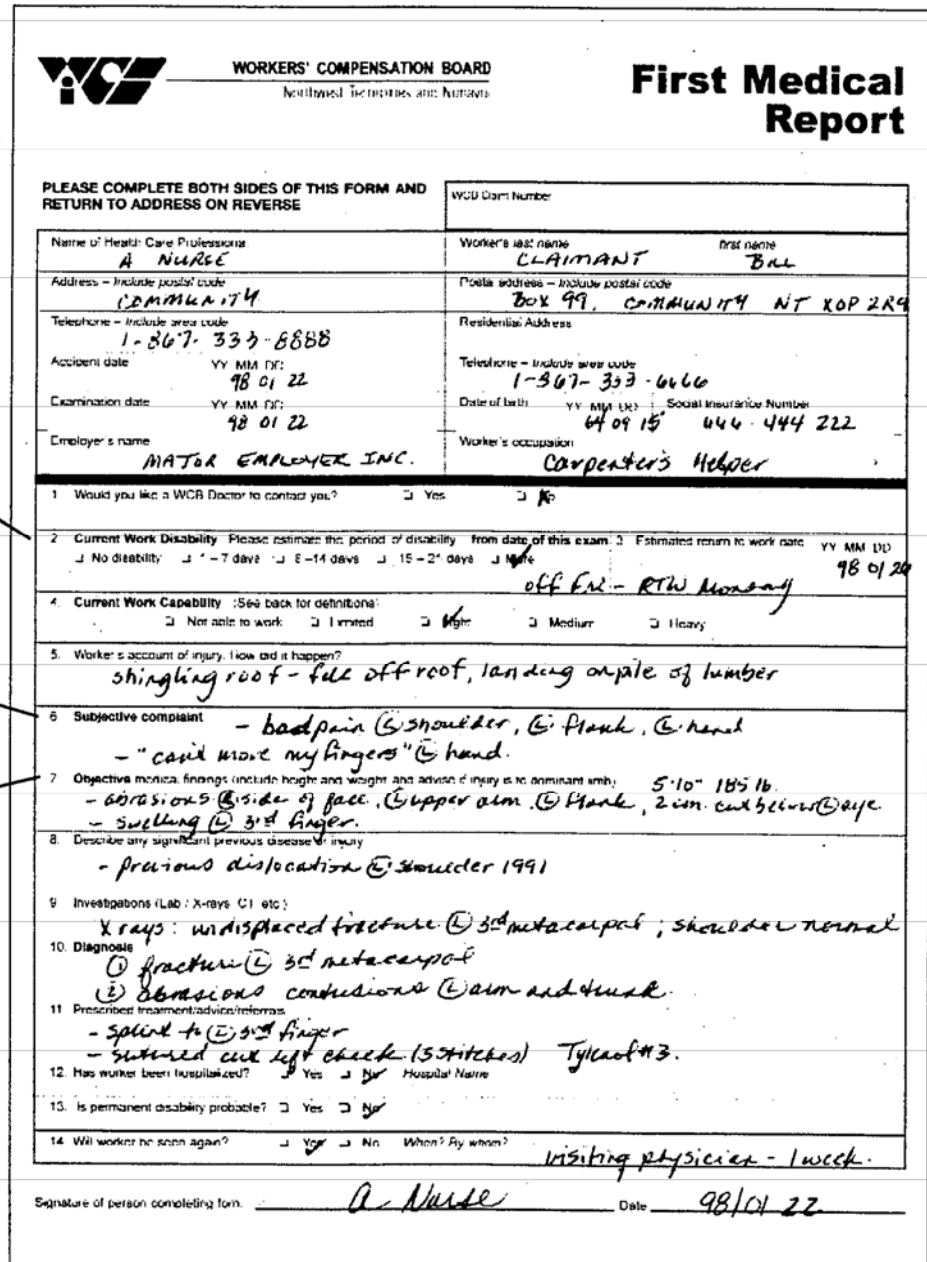 WCB
WORKERS' COMPENSATION BOARD
Northwest Territories and Nunavut
First Medical
Report
PLEASE COMPLETE BOTH SIDES OF THIS FORM AND
RETURN TO ADDRESS ON REVERSE
WCB Claim Number
Name of Health Care Professional
A NURSE
Worker's last name first name
CLAIMANT BILL
Address – Include postal code
COMMUNITY
Postal address – Include postal code
BOX 99, COMMUNITY NT X0P 2R9
Telephone – Include area code
1-867-333-8888
Residential Address
Accident date YY MM DD
98 01 22
Telephone – Include area code
1-367-333-6666
Examination date YY MM DD
98 01 22
Date of birth YY MM DD Social Insurance Number
64 09 15 444 - 444 222
Employer's name
MAJOR EMPLOYER INC.
Worker's occupation
Carpenter's Helper
1 Would you like a WCB Doctor to contact you? Yes No
2 Current Work Disability Please estimate the period of disability from date of this exam. 3 Estimated return to work date YY MM DD
No disability 1 – 7 days 8 – 14 days 15 – 21 days More
98 01
off Fri – RTW Monday
4. Current Work Capability (See back for definitions)
Not able to work Limited Light Medium Heavy
5. Worker's account of injury. How did it happen?
shingling roof – fell off roof, landing on pile of lumber
6 Subjective complaint – bad pain (L) shoulder, (L) flank, (L) hand
– "can't move my fingers" (L) hand.
7 Objective medical findings (include height and weight and advise if injury is to dominant limb) 5'10" 185 lb.
– abrasions (L) side of face, (L) upper arm (L) flank, 2 cm. cut below (L) eye.
– swelling (L) 3rd finger.
8. Describe any significant previous disease or injury
– previous dislocation (L) shoulder 1991
9 Investigations (Lab / X-rays, CT, etc.)
X rays: undisplaced fracture (L) 3rd metacarpal ; shoulder normal
10. Diagnosis
(1) fracture (L) 3rd metacarpal
(2) abrasions contusions (L) arm and trunk.
11 Prescribed treatment/advice/referrals
– splint to (L) 3rd finger
– sutured cut left cheek (5 stitches) Tylenol #3.
12. Has worker been hospitalized? Yes No Hospital Name
13. Is permanent disability probable? Yes No
14 Will worker be seen again? Yes No When? By whom?
visiting physician – 1 week.
Signature of person completing form. A. Nurse Date 98/01 22